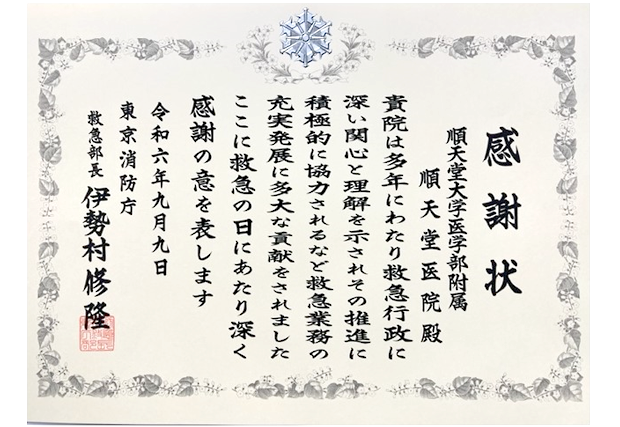 感謝状
順天堂大学医学部附属
順天堂医院殿
貴院は多年にわたり救急行政に
深い関心と理解を示されその推進に
積極的に協力されるなど救急業務の
充実発展に多大な貢献をされました
ここに救急の日にあたり深く
感謝の意を表します
令和六年九月九日
東京消防庁
救急部長 伊勢村修隆